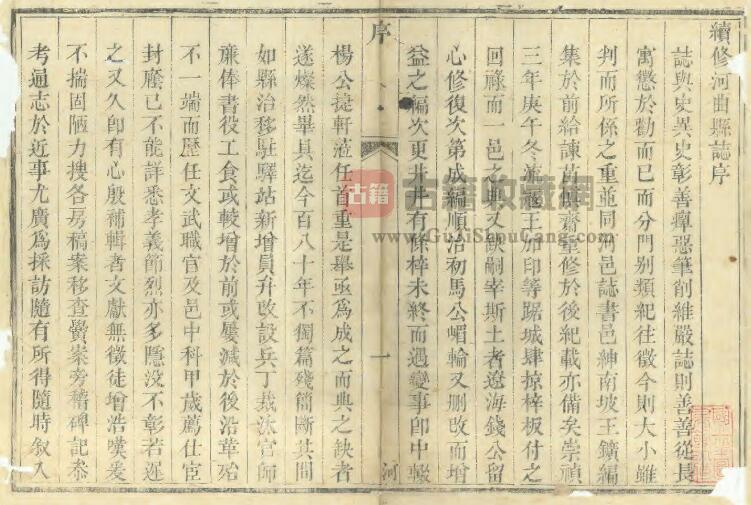 續修河曲縣誌序
誌與史異史彰善癉惡筆削維嚴誌則善善從長
寓懲於勸而已而分門別類紀往徵今則大小雖
判而所係之重並同河邑誌書邑紳南坡王鑛編
集於前給諫苗 齋重修於後紀載亦備矣崇禎
三年庚午冬流寇王加印等踞城肆掠梓板付之
回祿而一邑之典又 嗣宰斯土者遼海錢公留
心修復次第成編順治初馬公嵋輪又刪改而增
益之編次更井井有條梓未終而遇變事卽中輟
序
一
河
楊公捷軒蒞任首重是舉亟爲成之而典之缺者
遂燦然畢具迄今百八十年不獨篇殘簡斷其間
如縣治移駐驛站新增員弁改設兵丁裁汰官師
廉俸書役工食或較增於前或屢減於後沿革殆
不一端而歷任文武職官及邑中科甲歲薦仕宦
封廕已不能詳悉孝義節烈亦多隱没不彰若遲
之又久卽有心殷補輯者文獻無徵徒增浩嘆爰
不揣固陋力搜各房稿案移查黌案旁稽碑記叅
考通志於近事尤廣爲採訪隨有所得隨時敘入
古籍
古籍收藏網
www.GuJiShouCang.com